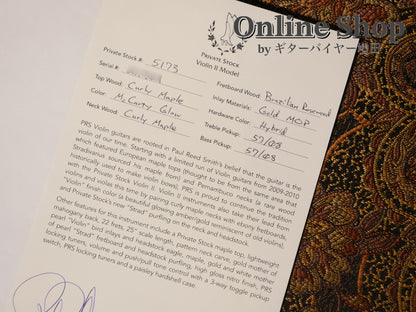 Online Shop
by ギターバイヤー
PRIVATE STOCK
Violin II Model
Private Stock # 5173
Serial#
Top Wood: Curly Maple
Color: McCarty Glow
Neck Wood: Curly Maple
Fretboard Wood: Brazilian Rosewood
Inlay Materials: Gold MOP
Hardware Color: Hybrid
Treble Pickup: 57/08
Bass Pickup: 57/08
PRS Violin guitars are rooted in Paul Reed Smith's belief that the guitar is the
violin of our time. Starting with a limited run of Violin guitars from 2009-2010
which featured European maple tops (thought to be from the same area that
Stradivarius sourced his maple from) and Pernambuco necks (a rare wood
historically used to make violin bows), PRS is proud to continue the tradition
with the Private Stock Violin II. Violin II instruments also take their lead from
violins and violas this time by pairing curly maple necks with ebony fretboards,
"Violin" finish color (a beautiful glowing amber/gold reminiscent of old violins),
and Private Stock's new "Strad" purfling on the neck and headstock.
Other features for this instrument include a Private Stock maple top, lightweight
mahogany back, 22 frets, 25" scale length, pattern neck carve, gold mother of
pearl "Violin" bird inlays and headstock eagle, maple, gold and white mother
of pearl "Strad" fretboard and headstock purfling, high gloss nitro finish, PRS
locking tuners, volume and push/pull tone control with a 3-way toggle pickup
switch, PRS locking tuners and a paisley hardshell case.